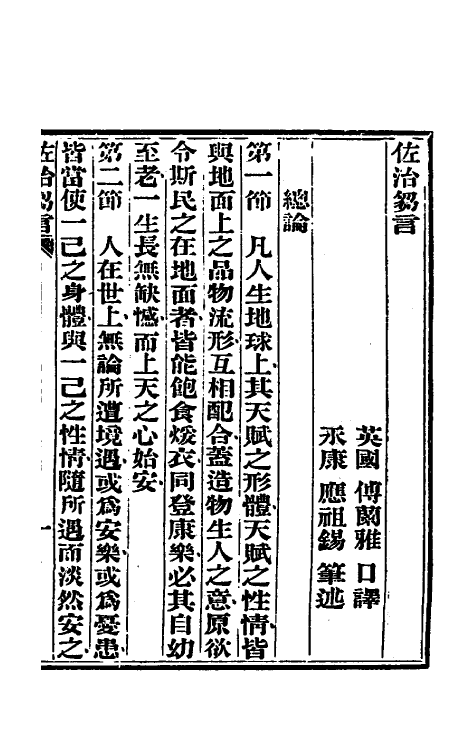 佐治芻言
英國 傅蘭雅 口譯
永康 應祖錫 筆述
總論
第一節 凡人生地球上其天賦之形體天賦之性情皆
與地面上之品物流形互相配合蓋造物生人之意原欲
令斯民之在地面者皆能飽食煖衣同登康樂必其自幼
至老一生長無缺憾而上天之心始安
第二節 人在世上無論所遭境遇或爲安樂或爲憂患
皆當使一己之身體與一己之性情隨所遇而淡然安之
佐治芻言 一